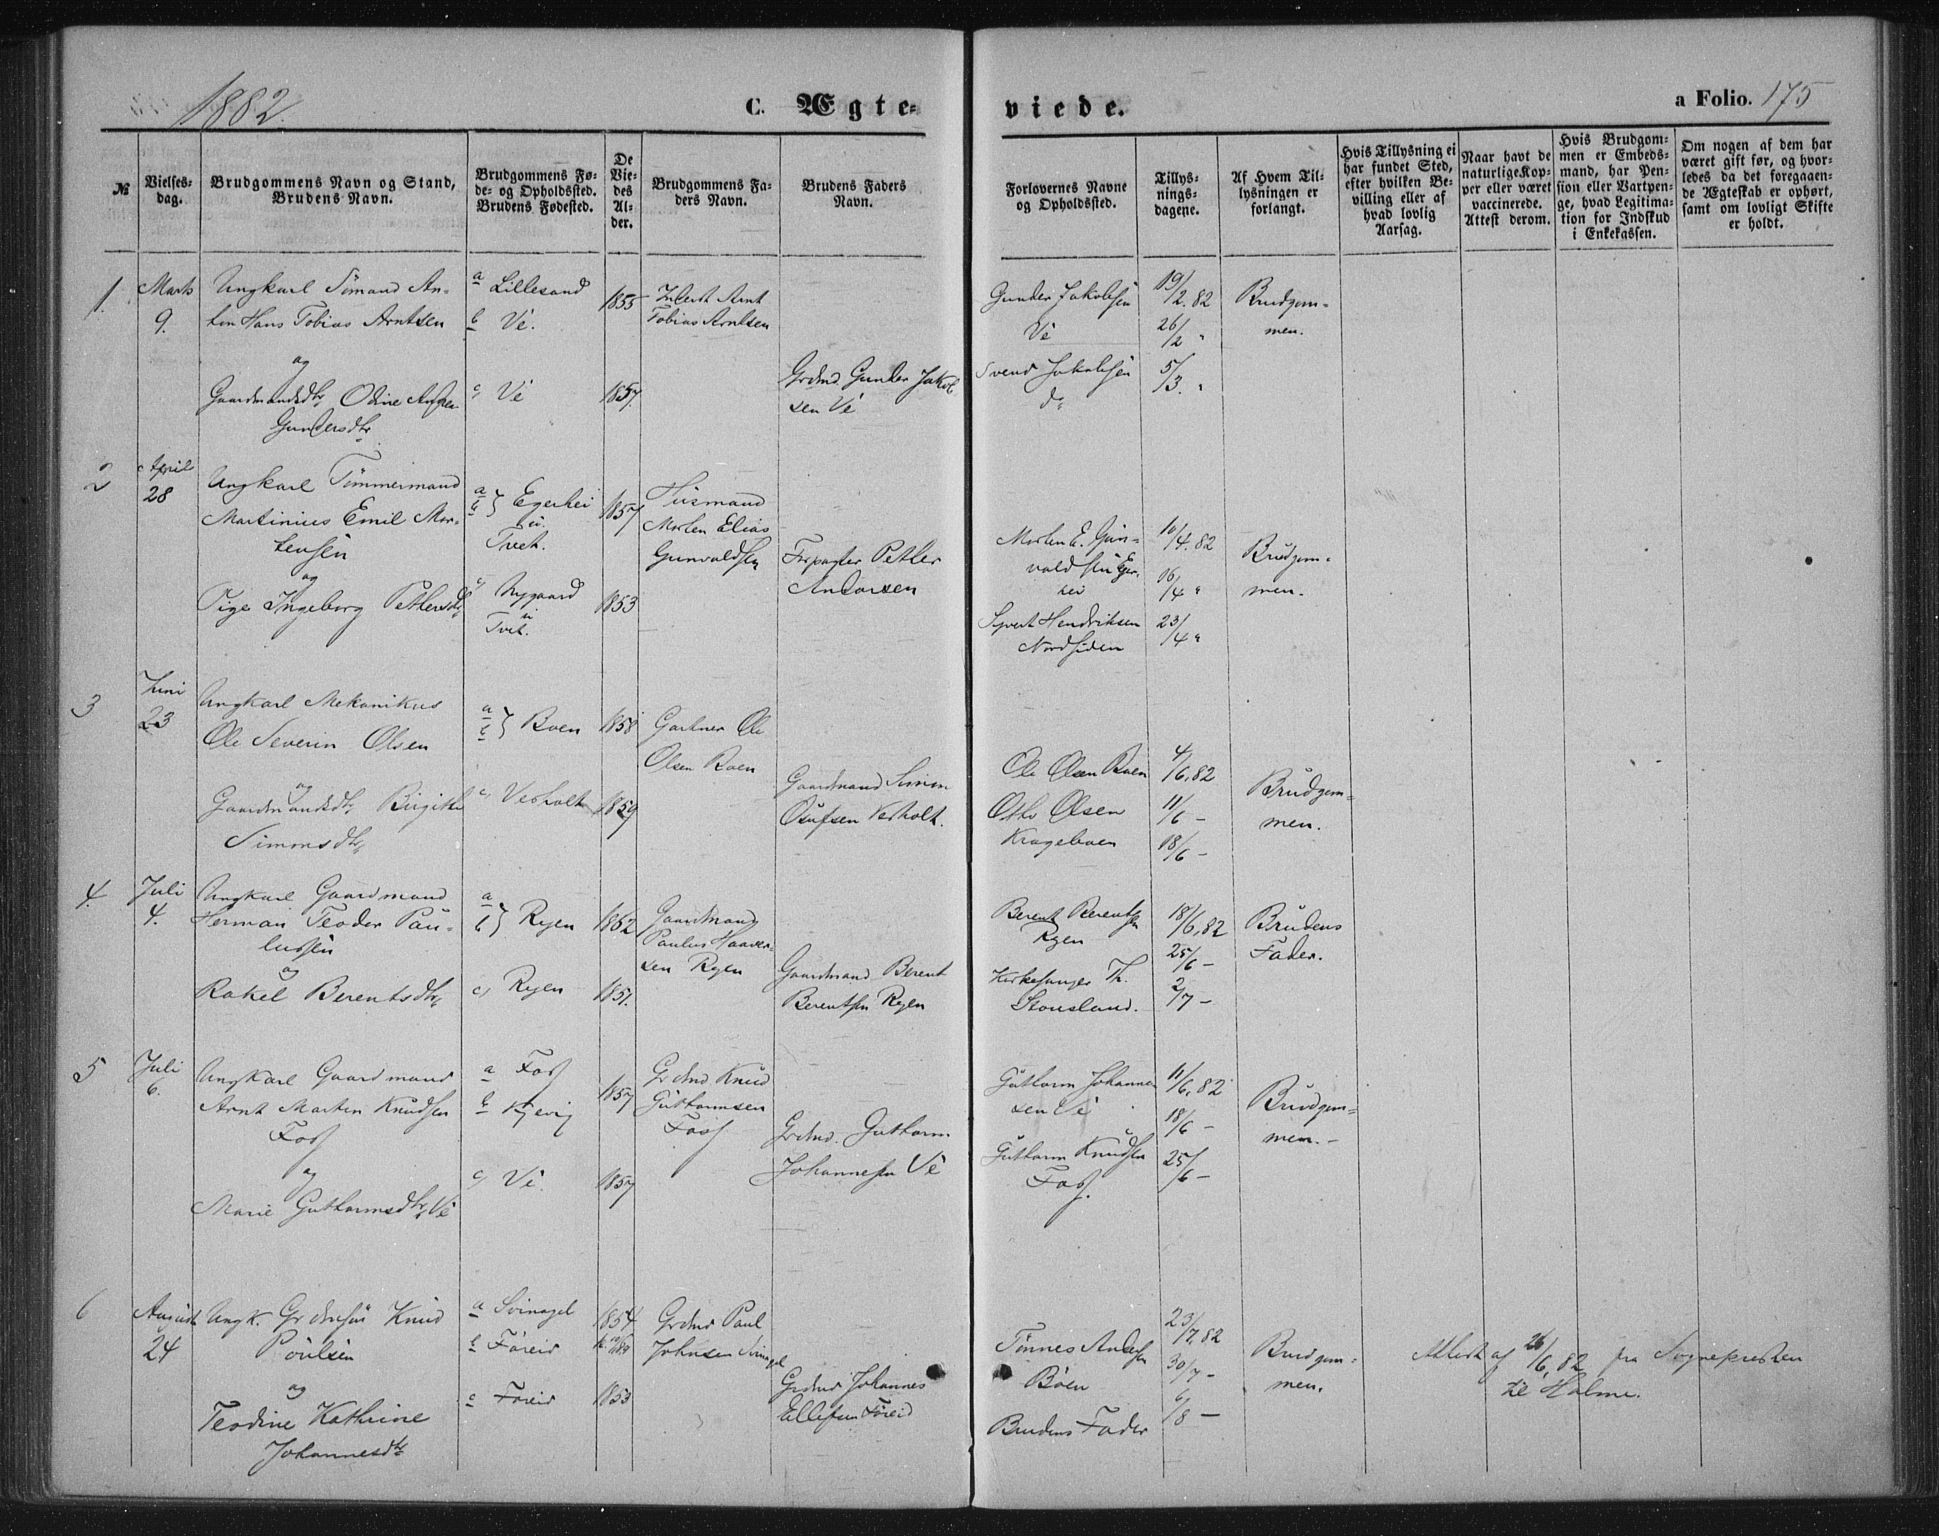 1882.
C. Ægteviede.
a Folio. 175
№
Vielses-
dag.
Brudgommens Navn og Stand,
Brudens Navn.
Brudgommens Fø-
de- og Opholdssted.
Brudens Fødested.
De
Vie-
des
Al-
der.
Brudgommens Fa-
ders Navn.
Brudens Faders
Navn.
Forlovernes Navne
og Opholdssted.
Tillys-
nings-
dagene.
Af Hvem Til-
lysningen er
forlangt.
Hvis Tillysning ei
har fundet Sted,
efter hvilken Be-
villing eller af
hvad lovlig
Aarsag.
Naar havt de
naturlige Kop-
per eller været
vaccinerede.
Attest derom.
Hvis Brudgom-
men er Embeds-
mand, har Pen-
sion eller Vartpen-
ge, hvad Legitima-
tion for Indskud
i Enkekassen.
Om nogen af dem har
været gift før, og hvor-
ledes da det foregaaen-
de Ægteskab er ophørt,
samt om lovligt Skifte
er holdt.
1.
Marts
9.
Ungkarl Sømand An-
ton Hans Tobias Arntsen
og
Gaardmandsdtr Odine
Gundersdtr
a Lillesand
b Vé.
c, Vé
1855
1857.
Arnt
Tobias Arntsen
Grdmd. Gunder Jakob-
sen Vé
Gunder Jakobsen
Vé
Svend Jakobsen
do
19/2.82
26/2 "
5/3. "
Brudgom-
men.
2
April
28
Ungkarl Tømmermand
Martinius Emil Mor-
tensen
og
Pige Ingeborg Pettersdtr
a
b } Egerhei
i
Tveit.
c, Nygaard
i
Tveit.
1857
1853
Husmand
Morten Elias
Gunvaldsen
Forpagter Petter
Andersen
Morten E. Gun-
valdsen Eger-
hei
Syvert Hendriksen
Nordsiden
10/4.82
16/4 "
23/4 "
Brudgom-
men.
3
Juni
23
Ungkarl Mekanikus
Ole Severin Olsen
og
Gaardmandsdtr Birgitte
Simonsdtr
a
b } Boen
c, Vesholt
1858
1859
Gartner Ole
Olsen Boen
Gaardmand Simon
Osufsen Vesholt.
Ole Olsen Boen
Otto Olsen
Krageboen
4/6.82
11/6 -
18/6 -
Brudgom-
men.
4.
Juli
4.
Ungkarl Gaardmand
Herman Teodor Pau-
lussen
og
Rakel Berentsdtr
a
b } Ryen
c, Ryen
1862
1857.
Gaardmand
Paulus Haaver-
sen Ryen
Gaardmand Berent
Berentsen Ryen
Berent Berentsen
Ryen
Kirkesanger Th.
Stousland.
18/6.82
25/6 -
2/7 -
Brudens
Fader.
5
Juli
6.
Ungkarl Gaardmand
Arnt Martin Knudsen
Foss
og
Marie Guttormsdtr Vé
a Foss
b Kjevig
c, Vé.
1857
1857
Grdmd Knud
Guttormsen
Foss
Grdmd. Guttorm
Johannesen Vé
Guttorm Johanne-
sen Vé
Guttorm Knudsen
Foss.
11/6.82
18/6 -
25/6 -
Brudgom-
men. -
6
August
24
Ungk. Grdmssøn Knud
Poulsen
og
Teodine Kathrine
Johannesdtr
a Svinagel
b Føreid
c Føreid
1854
1853
Grdmd Paul
Johnsen Svinagel
Grdmd Johannes
Ellefsen Føreid
Tønnes Andersen
Bøen
Brudens Fader
23/7.82
30/7 -
6/8 -
Brudgom-
men.
Attest af 26/6.82 fra Sognepresten
til Holme.